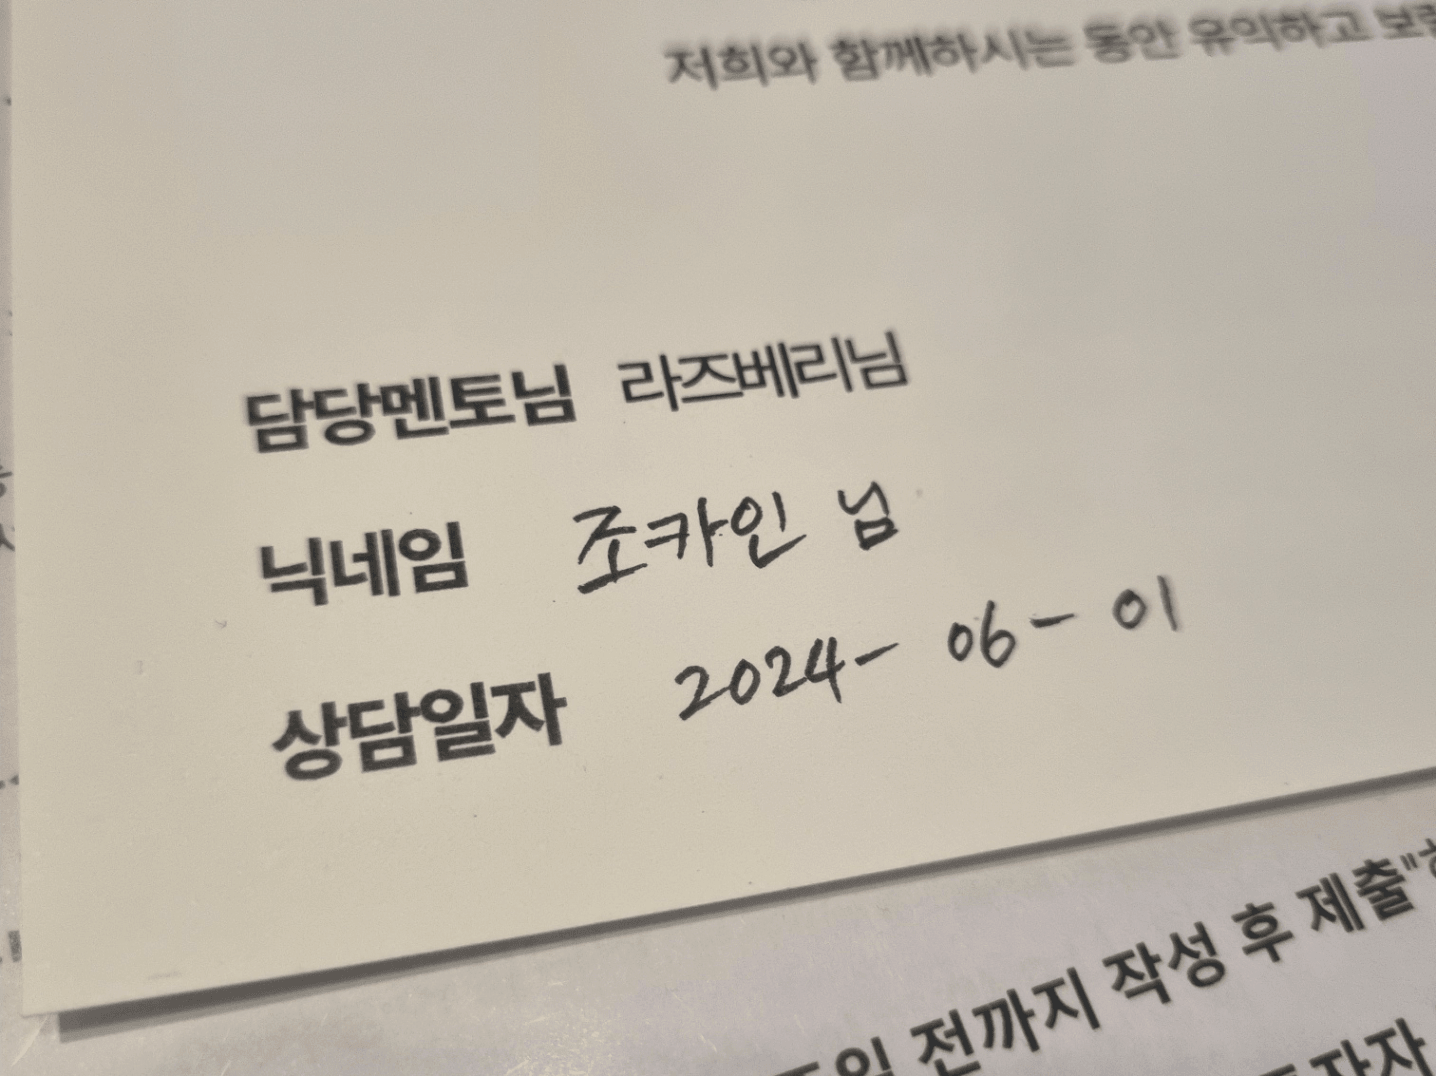 저희와 함께하시는 동안 유익하고
담당멘토님 라즈베리님
닉네임 조카인 님
상담일자 2024-06-01
전까지 작성 후 제출"